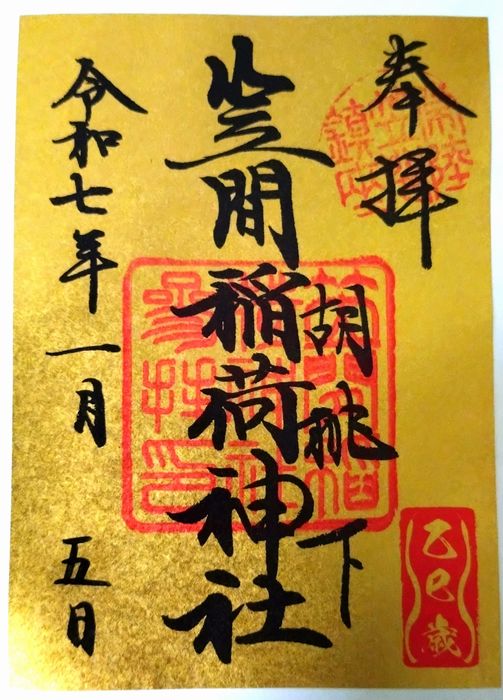 奉拝
胡桃下
笠間稲荷神社
令和七年一月五日
乙巳歳